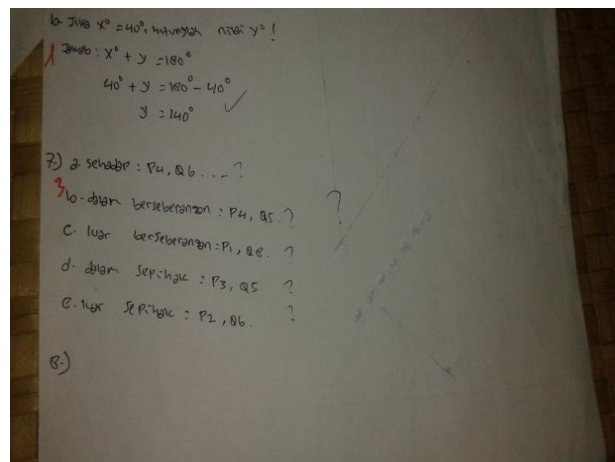 b. Jika x° = 40°, hitunglah nilai y° !
1 Jawab : x° + y = 180°
40° + y = 180° - 40°
y = 140° ✓
7.) a. sehadap : P4, Q6 .... ?
3 b. dalam berseberangan : P4, Q5. ? ?
c. luar berseberangan : P1, Q8. ?
d. dalam sepihak : P3, Q5 ?
e. luar sepihak : P2, Q6. ?
8.)